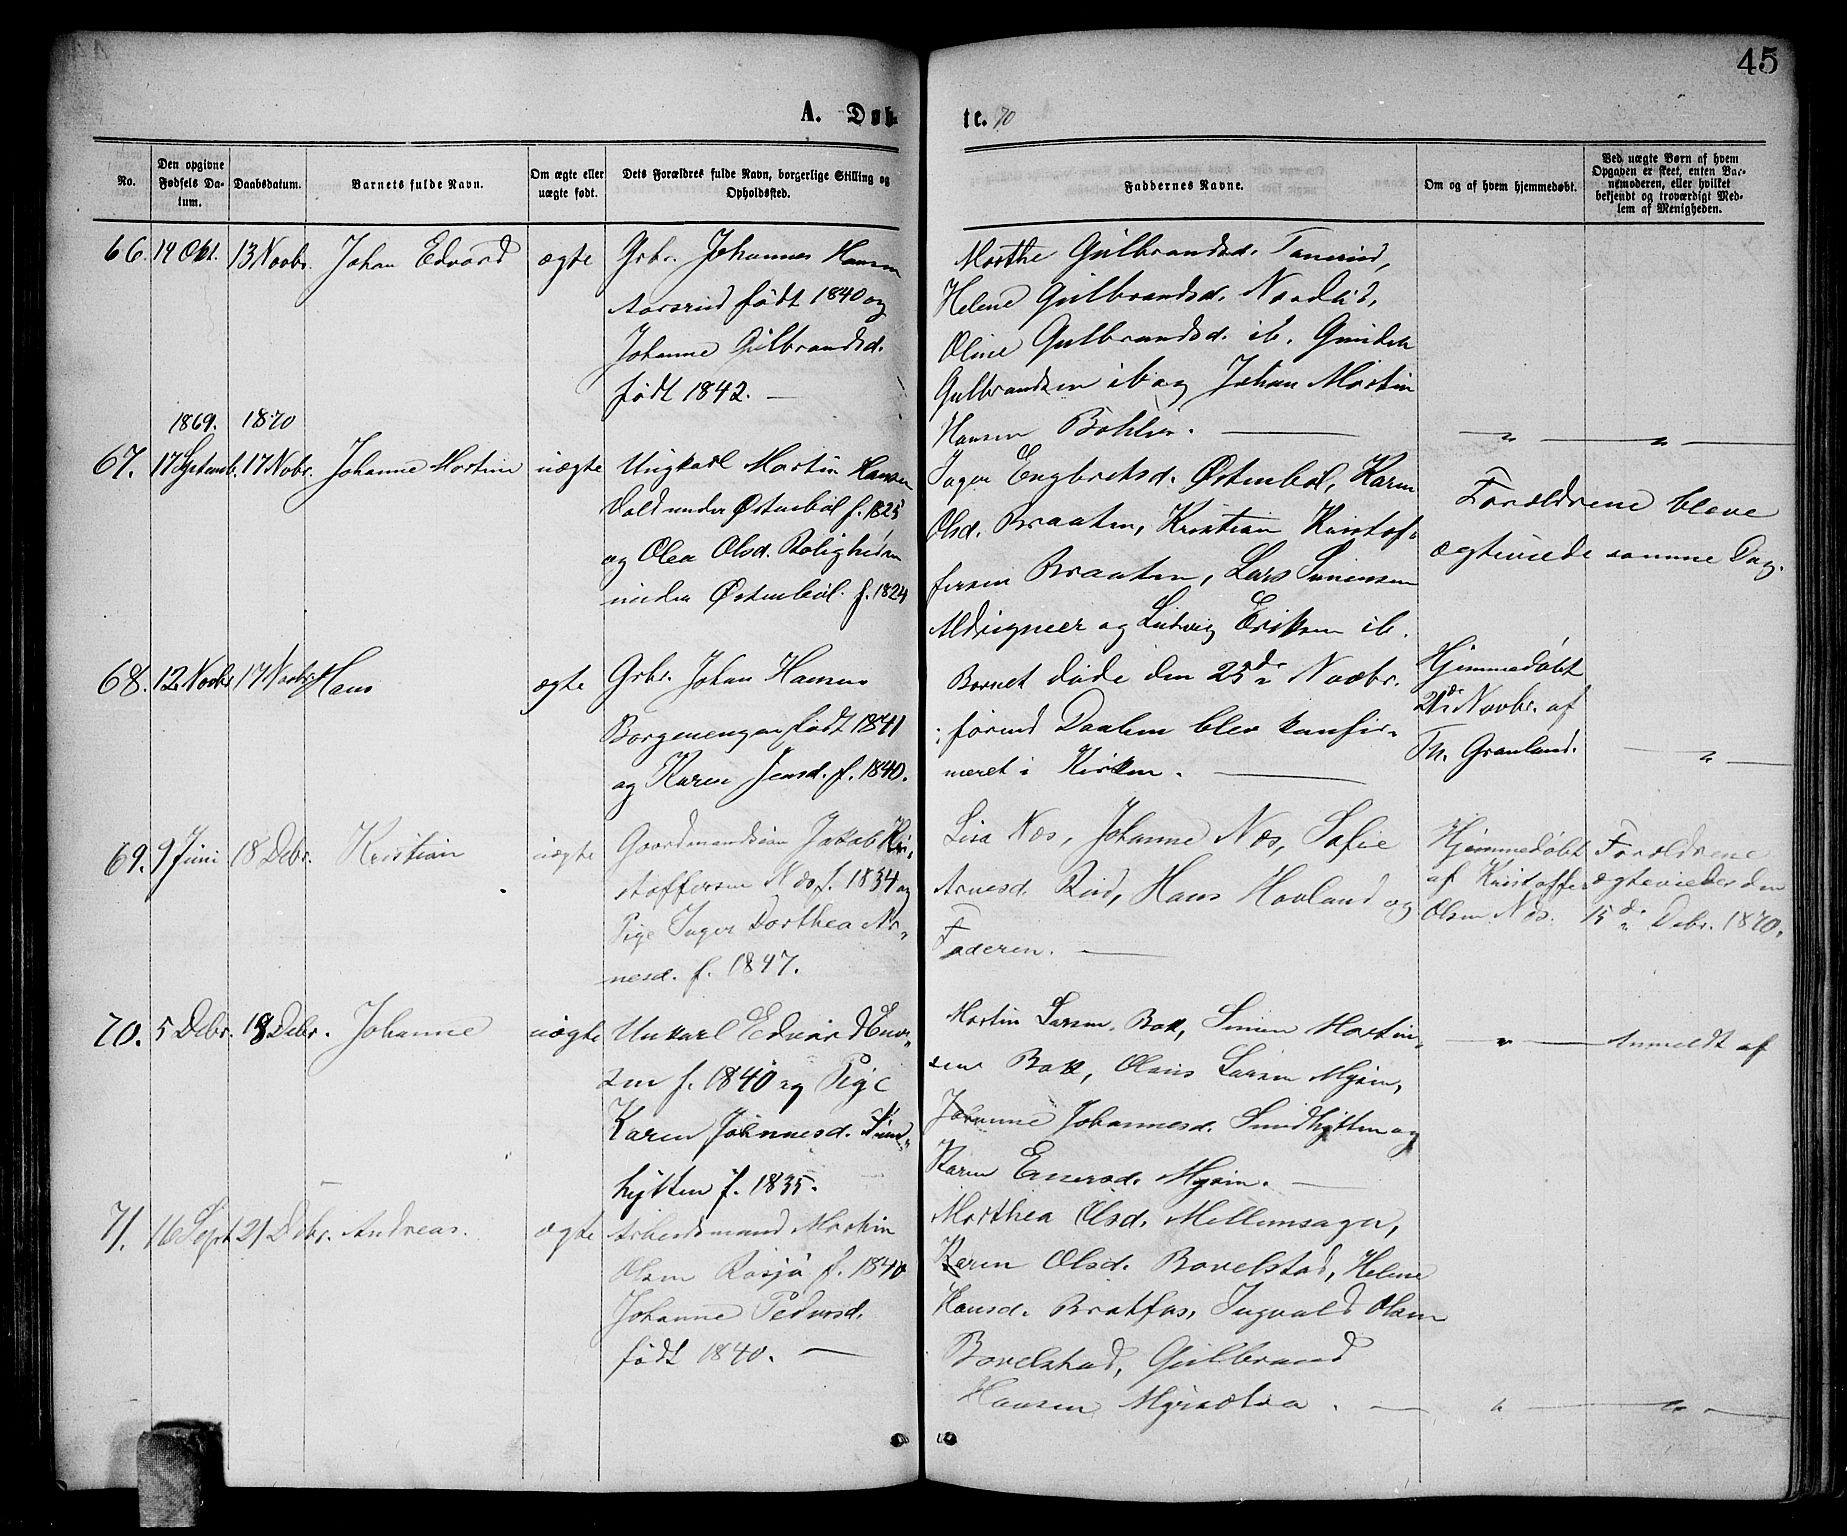 45
A. Døbte. 70
No.
Den opgivne Fødsels Datum.
Daabsdatum.
Barnets fulde Navn.
Om ægte eller uægte født.
Dets Forældres fulde Navn, borgerlige Stilling og Opholdssted.
Faddernes Navne.
Om og af hvem hjemmedøbt.
Ved uægte Børn af hvem Opgaven er skeet, enten Barnemoderen, eller hvilket bekjendt og troværdigt Medlem af Menigheden.
66. 14 Okt. 13 Novbr. Johan Edvard ægte
Grbr. Johannes Hansen
født 1840 og
Johanne Gulbrandsd.
født 1842. —
Marthe Gulbrandsd.
Helene Gulbrandsd. Nordlid,
Oline Gulbrandsd. ib.
Gulbrandsen ib og Johan Martin
Hansen Bøhler. — „ — „ —
1869. 1870
67. 17 Septemb. 17 Nobr. Johanne Martine uægte
Ungkarl Martin Hansen
Dal under Østenbøl f. 1825
og Olea Olsd. Boligheden
under Østenbøl. f. 1824
Inger Engbretsd. Østenbøl, Karen
Olsd. Braaten, Kristian Kristof-
fersen Braaten, Lars Simensen
og Ludvig Eriksen ib.
Forældrene bleve
ægteviede samme Dag.
68. 12 Novbr. 17 Novbr. Hans ægte
Grbr. Johan Hansen
Borgenengen født 1841
og Karen Jensd. f. 1840.
Barnet døde den 25de Novbr.
førend Daaben blev konfir-
meret i Kirken. —
Hjemmedøbt
21de Novbr. af
Th. Granlund. — „ —
69. 9 Juni 18 Debr. Kristian uægte
Gaardmandssøn Jakob Kri-
stoffersen Næs f. 1834 og
Pige Inger Dorthea Ar-
nesd. f. 1847.
Lisa Næs, Johanne Næs, Sofie
Arnesd. Rud, Hans Hovland og
Faderen. —
Hjemmedøbt
af Kristoffer
Olsen Næs.
Forældrene
ægteviedes den
15de Debr. 1870.
70. 5 Debr. 18 Debr. Johanne uægte
Unkarl Edvard Ener-
sen f. 1840 og Pige
Karen Johannesd.
hytten f. 1835.
Martin Larsen Bak, Simen Martin-
sen Bak, Olaus Larsen Myren,
Johanne Johannesd. Smidhytten og
Karen Enersd. Myren. —
— „ — Anmeldt af
71. 16 Sept. 21 Debr. Andreas. ægte
Arbeidsmand Martin
Olsen Røsjø f. 1840
Johanne Pedersd.
født 1840. —
Marthea Olsd. Mellemsager,
Karen Olsd. Bovelstad, Helene
Hansd. Bratfos, Ingvald Olsen
Bovelstad, Gulbrand
Hansen Myrsætra. — „ — „ —